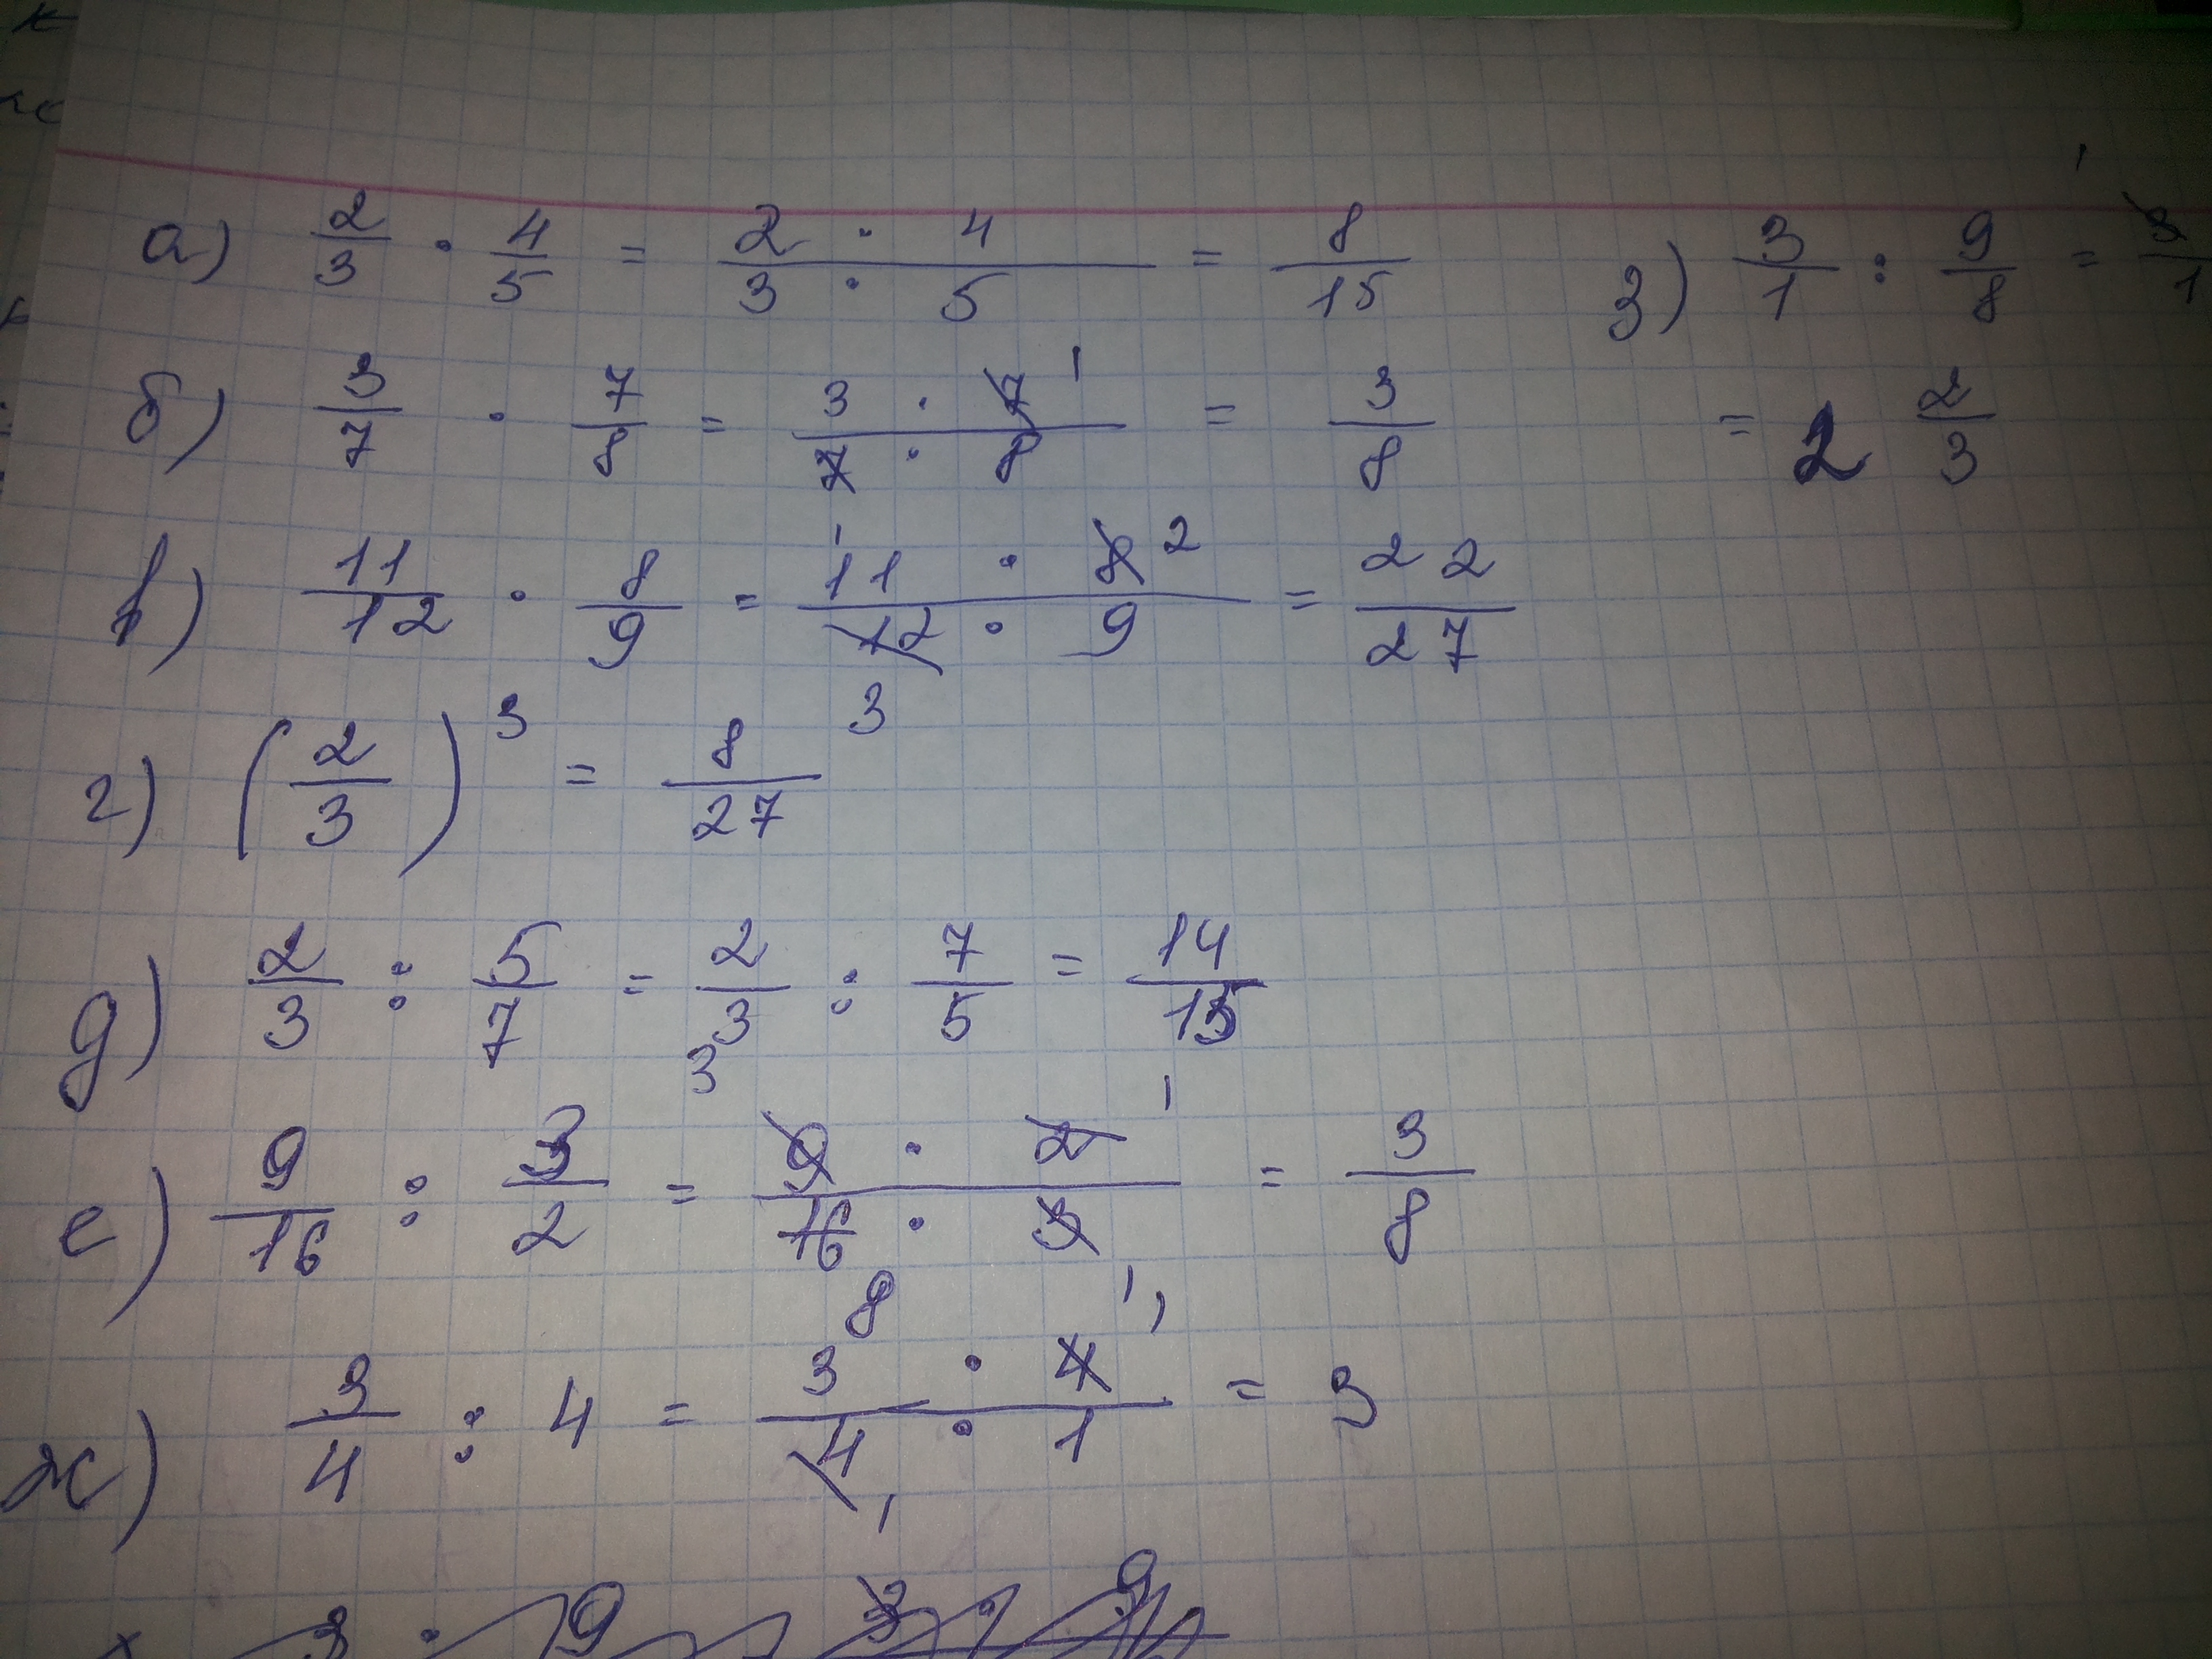 а) 2/3 · 4/5 = 2 · 4 / 3 · 5 = 8/15
б) 3/7 · 7/8 = 3 · 7 1 / 7 · 8 = 3/8
в) 11/12 · 8/9 = 1 11 · 8 2 / 12 3 · 9 = 22/27
г) (2/3)³ = 8/27
д) 2/3 : 5/7 = 2/3 : 7/5 = 14/15
е) 9/16 : 3/2 = 3 9 · 2 1 / 16 8 · 3 1 = 3/8
ж) 3/4 : 4 = 3 · 4 1 / 4 1 · 1 = 3
з) 3/1 : 9/8 = 3 1 / 1
= 2 2/3